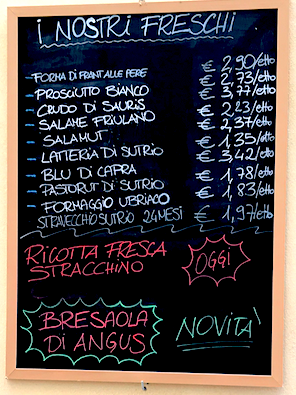 I NOSTRI FRESCHI
- FORMA DI FRANT ALLE PERE € 2,90/etto
- PROSCIUTTO BIANCO € 2,73/etto
- CRUDO DI SAURIS € 3,77/etto
- SALAME FRIULANO € 2,23/etto
- SALAMUT € 2,37/etto
- LATTERIA DI SUTRIO € 1,35/etto
- BLU DI CAPRA € 3,42/etto
- PASTORUT DI SUTRIO € 1,78/etto
- FORMAGGIO UBRIACO € 1,83/etto
STRAVECCHIO SUTRIO 24 MESI € 1,97/etto
RICOTTA FRESCA
STRACCHINO
OGGI
BRESAOLA
DI ANGUS
NOVITÀ